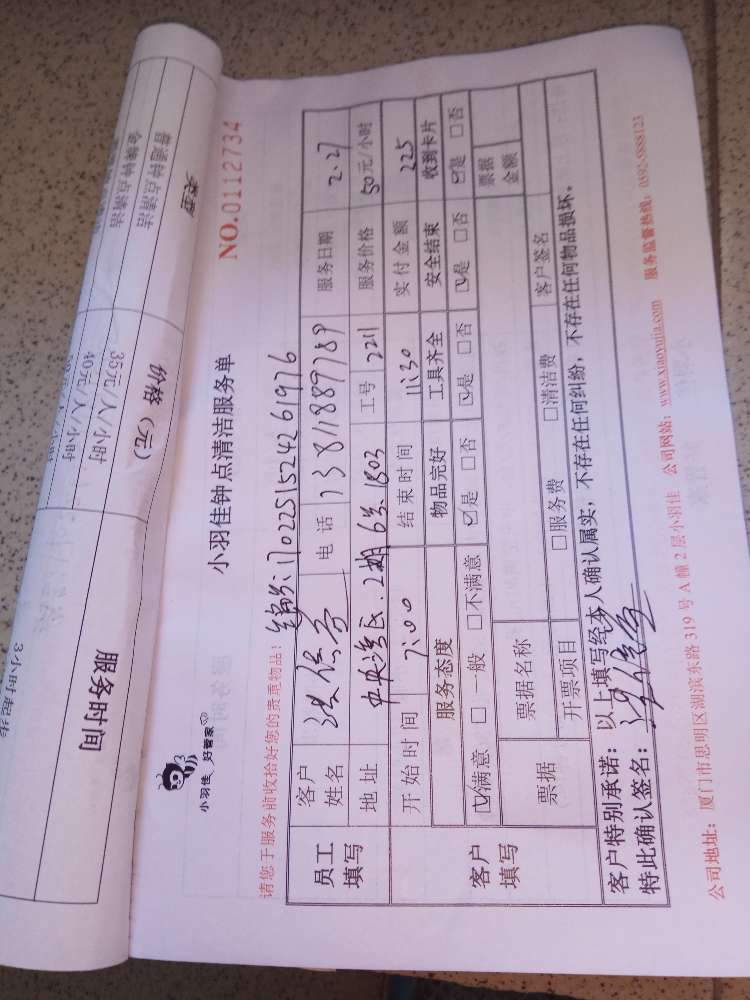 类型
普通钟点清洁
金牌钟点清洁
价格（元）
35元/人/小时
40元/人/小时
服务时间
3小时起
小羽佳 好管家
小羽佳钟点清洁服务单
NO.0112734
请您于服务前收拾好您的贵重物品！ 编号:17022515242 61976
员工填写 客户姓名 电话 13811889789 服务日期 2.27
地址 中央湾区.2期6号.1803 工号 2211 服务价格 50元/小时
客户填写 开始时间 7:00 结束时间 11:30 实付金额 225
服务态度 物品完好 工具齐全 安全结束 收到卡片
☑满意 □一般 □不满意 ☑是 □否 ☑是 □否 ☑是 □否 ☑是 □否
票据 票据名称 票据金额
开票项目 □服务费 □清洁费 客户签名
客户特别承诺：以上填写经本人确认属实，不存在任何纠纷，不存在任何物品损坏。
特此确认签名：
公司地址：厦门市思明区湖滨东路319号A幢2层小羽佳 公司网站：www.xiaoyujia.com 服务监督热线：0592-5888123